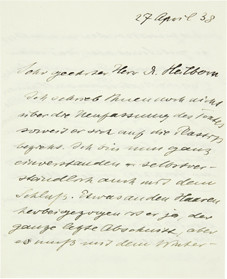 27 April 38
Sehr geehrter Herr Dr. Heilborn
Ich schrieb Ihnen noch nicht
über die Neufassung des
soweit er sich auf die
bezieht. Ich bin nun ganz
einverstanden u. selbstver-
ständlich auch mit dem
Schluß. Etwas an den Haaren
herbeigezogen ist er ja, der
ganze letzte Abschnitt, aber
mit dem